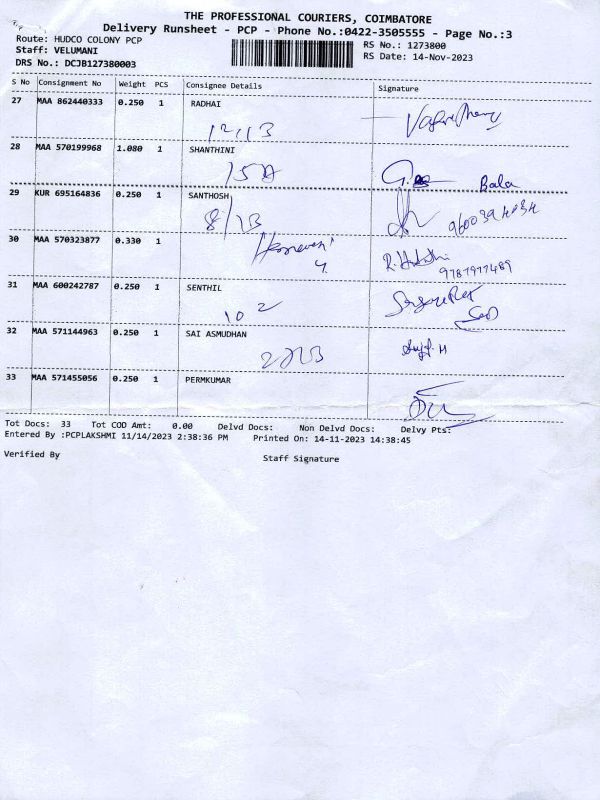 THE PROFESSIONAL COURIERS, COIMBATORE
Delivery Runsheet - PCP - Phone No.:0422-3505555 - Page No.:3
Route: HUDCO COLONY PCP
RS No.: 1273800
Staff: VELUMANI
RS Date: 14-Nov-2023
DRS No.: DCJB127380003
S No Consignment No Weight PCS Consignee Details Signature
27 MAA 862440333 0.250 1 RADHAI
28 MAA 570199968 1.080 1 SHANTHINI
Bala
29 KUR 695164836 0.250 1 SANTHOSH
8/13
30 MAA 570323877 0.330 1
9787977489
31 MAA 600242787 0.250 1 SENTHIL
10 2
32 MAA 571144963 0.250 1 SAI ASMUDHAN
33 MAA 571455056 0.250 1 PERMKUMAR
Tot Docs: 33 Tot COD Amt: 0.00 Delvd Docs: Non Delvd Docs: Delvy Pts:
Entered By :PCPLAKSHMI 11/14/2023 2:38:36 PM Printed On: 14-11-2023 14:38:45
Verified By Staff Signature